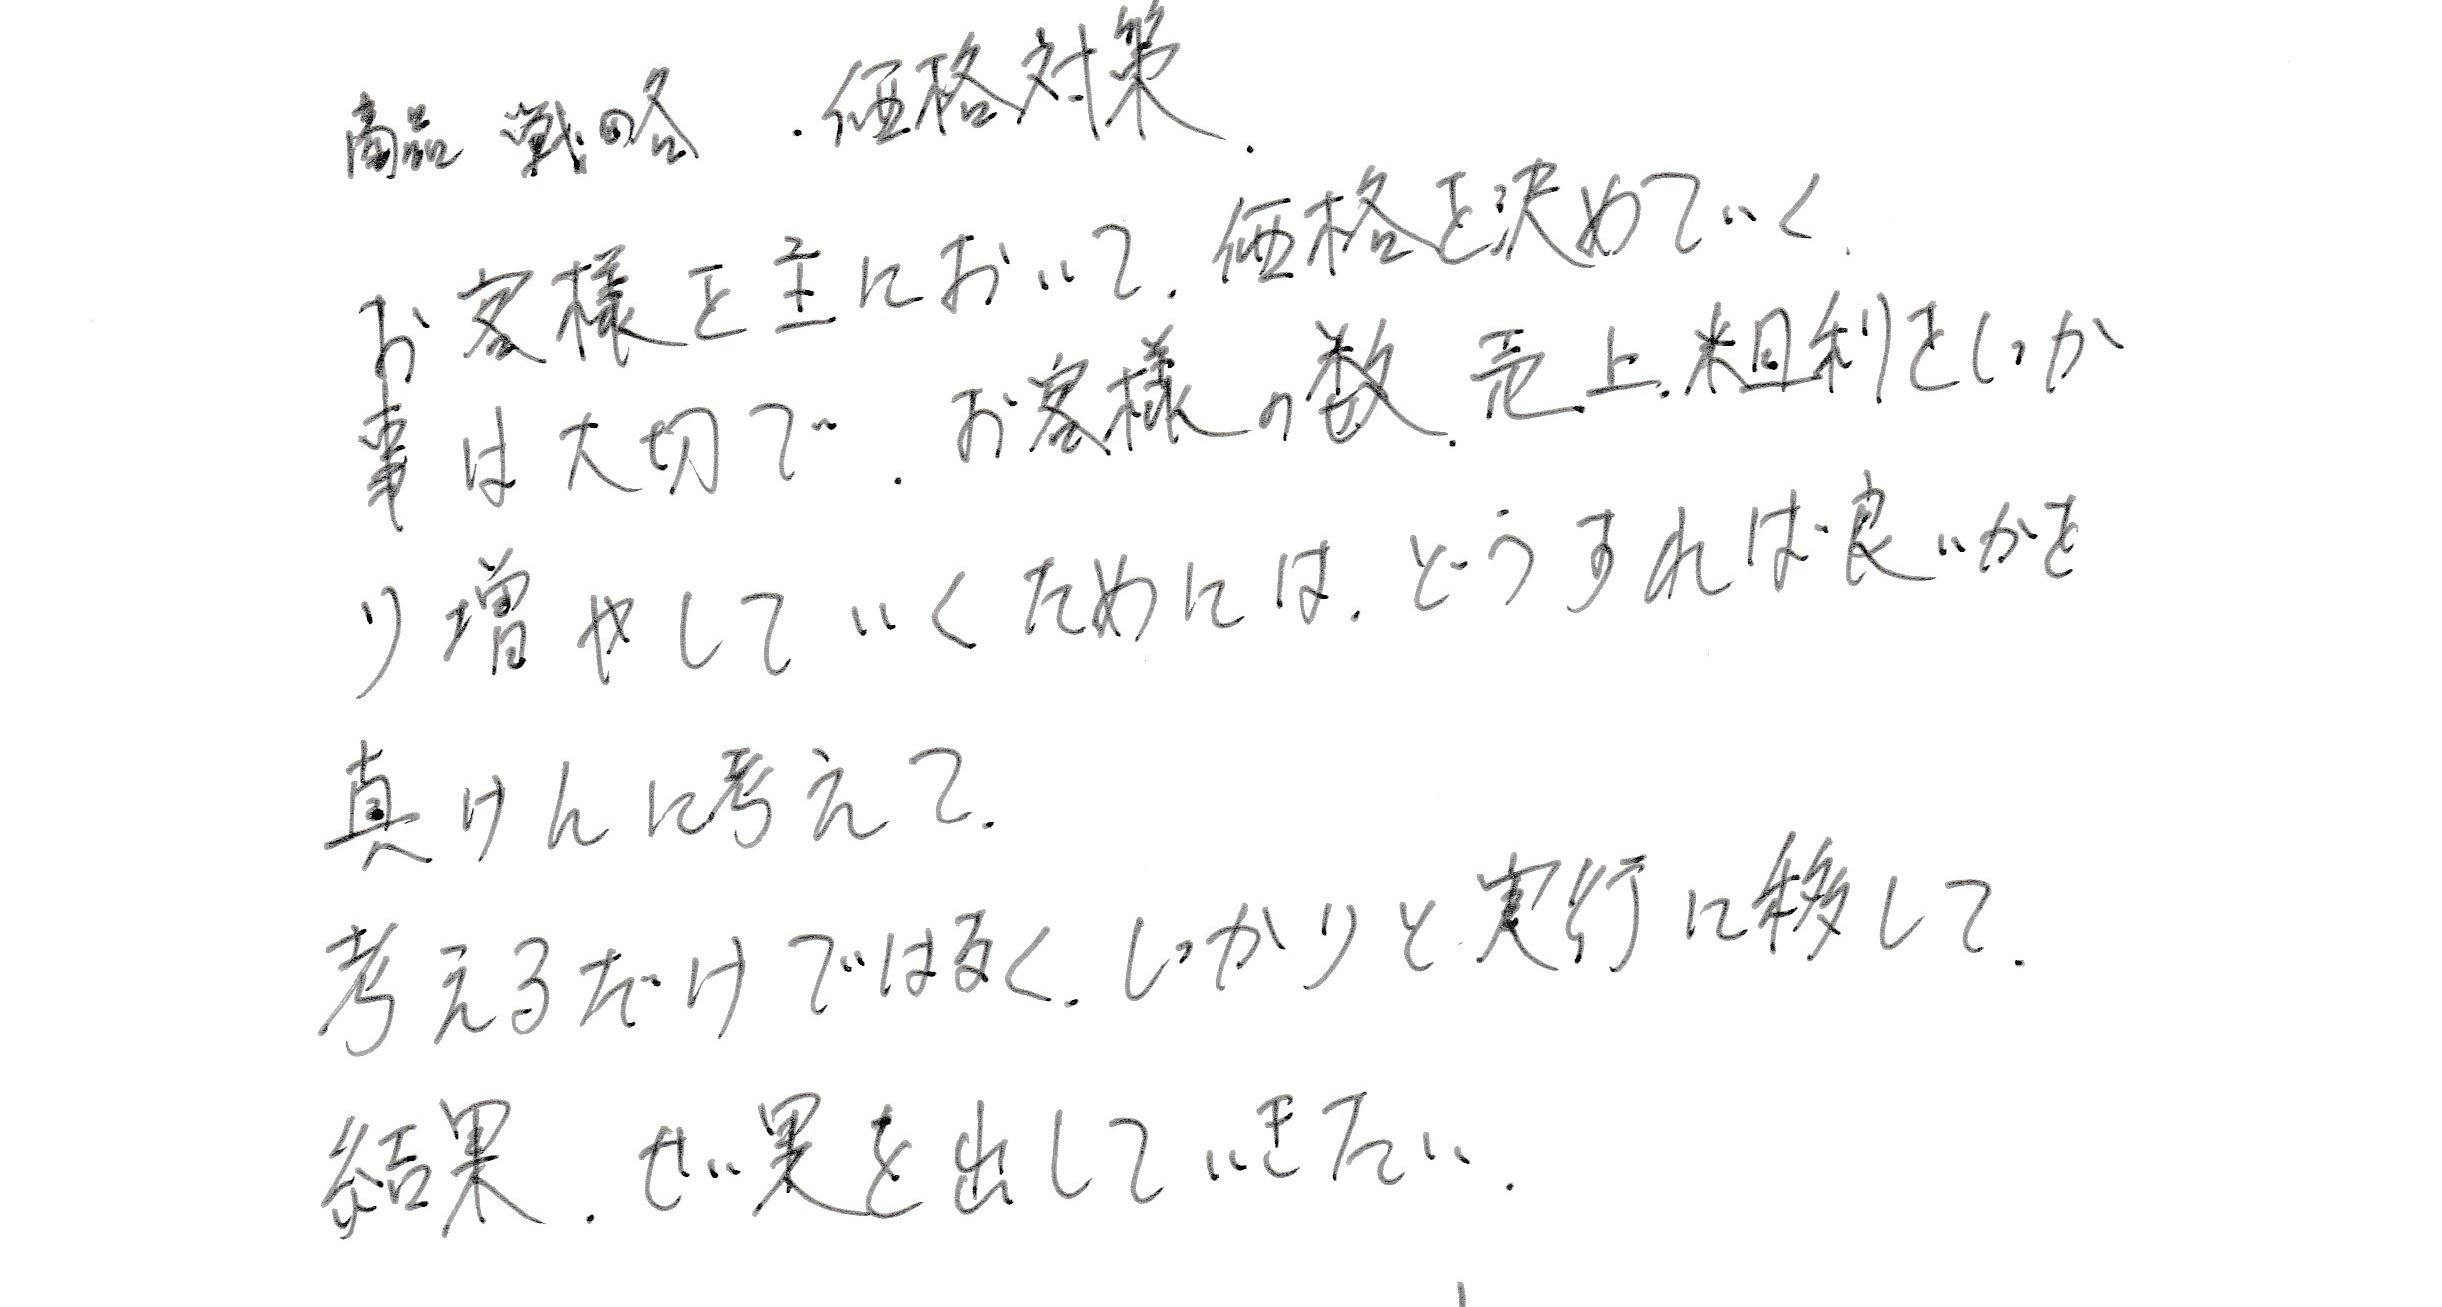 商品 戦略 . 価格対策.
お客様を主において. 価格を決めていく.
事は大切で. お客様の数. 売上. 粗利をしっか
り増やしていくためには. どうすれば良いかを
真けんに考えて.
考えるだけではなく. しっかりと実行に移して.
結果. せい果を出していきたい.